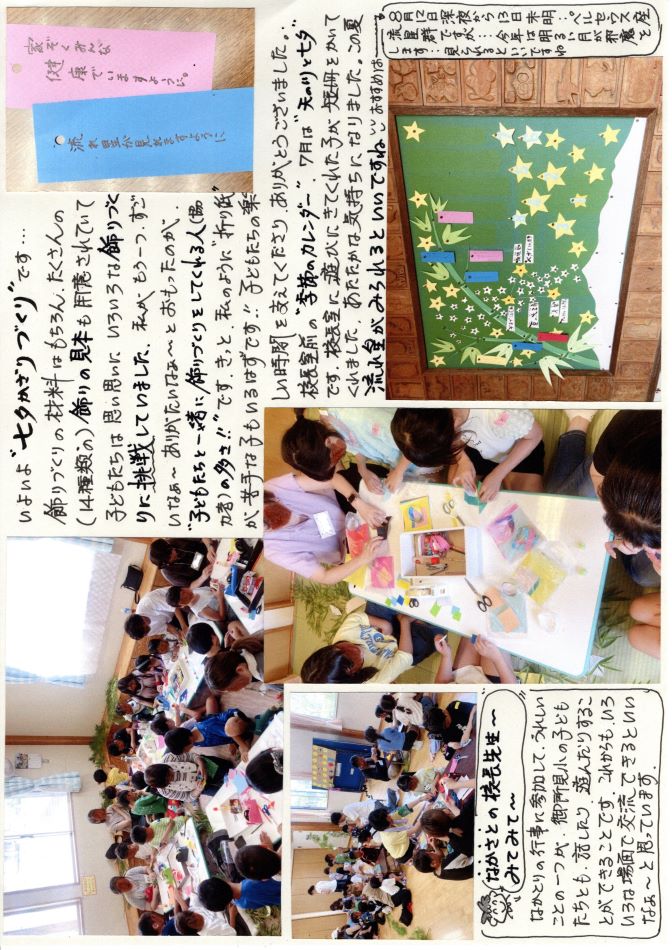 いよいよ"七夕かざりづくり"です…
飾りづくりの材料はもちろん、たくさんの
(14種類の)飾りの見本も用意されていて
子どもたちは思い思いに、いろいろな飾りづく
りに挑戦していました。私が、もう一つ、すご
いなぁ～ありがたいなぁ～とおもったのが、
"子どもたちと一緒に飾りづくりをしてくれる人(協
力者)の多さ!!"です。きっと、私のように"折り紙"
が苦手な子もいるはずです。子どもたちの楽
しい時間を支えてくださり、ありがとうございました。
家ぞくみんな
健康でいますように。
流れ星が見れますように
校長室前の"季節のカレンダー"、7月は"天の川と七夕"
です。校長室に遊びにきてくれた子が短冊をかいて
くれました。あたたかな気持ちになりました。この夏
流れ星がみられるといいですね。おすすめは
8月12日深夜から13日未明…ペルセウス座
流星群ですが…今年は明るい月が邪魔を
します…見られるといいですね
なかさとの校長先生～
みてみて～
なかさとの行事に参加して、うれしい
ことの一つが、御所見小の子ども
たちとも、話したり、遊んだりするこ
とができることです。これからも、いろ
いろな場面で交流できるといい
なぁ～と思っています。